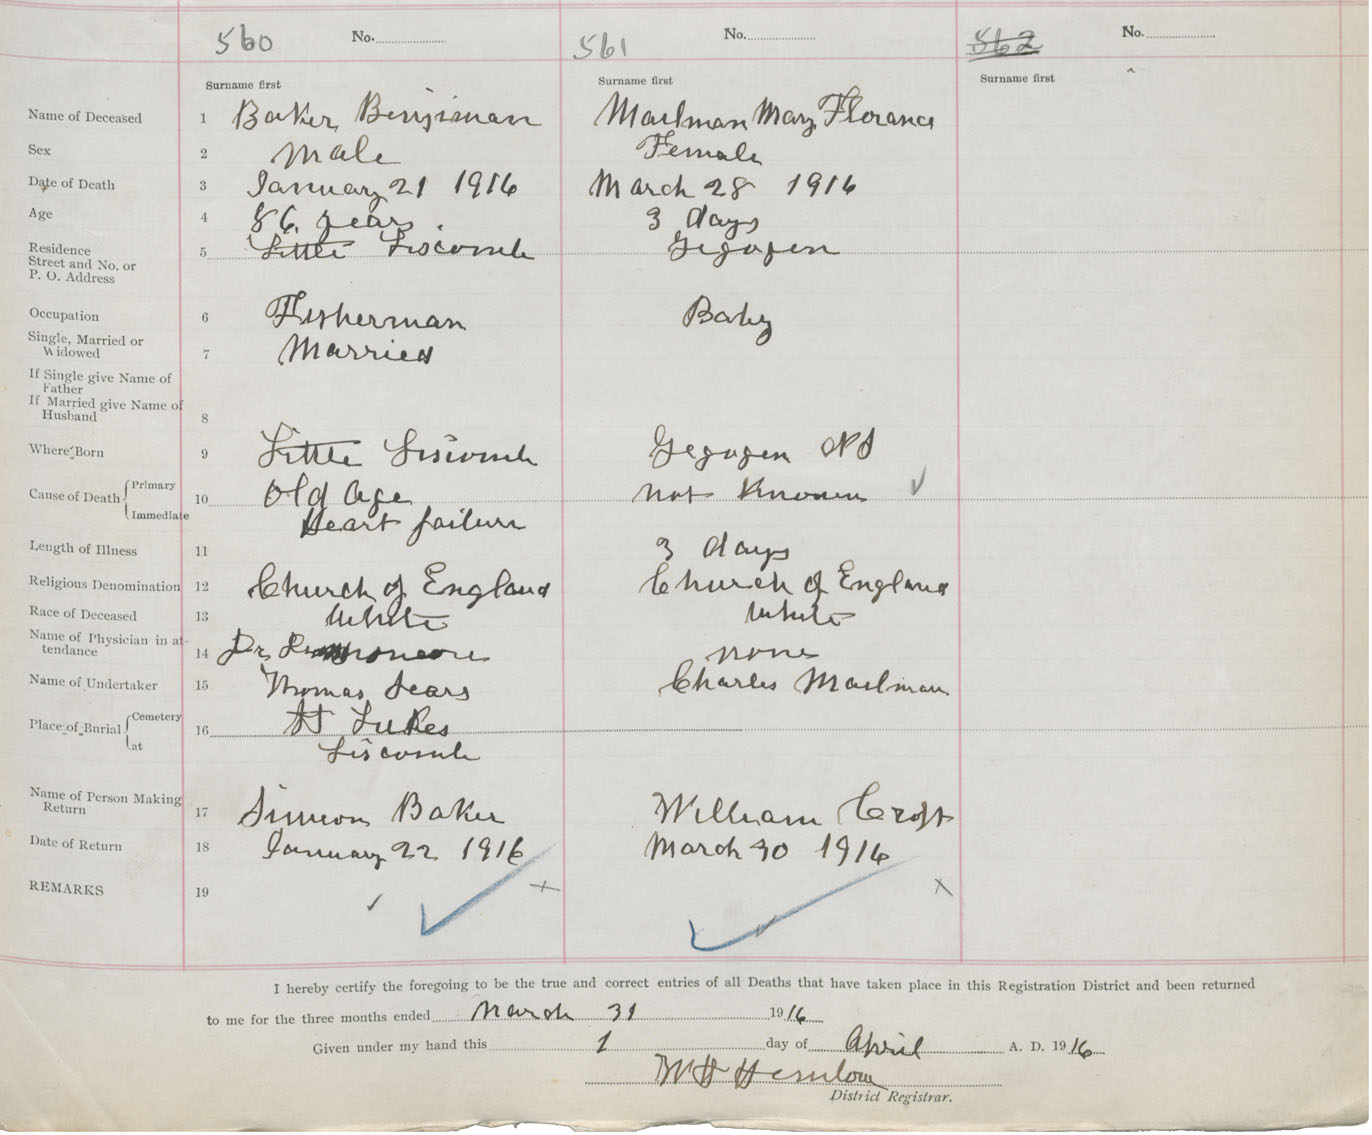 560 No. 561 No. 562 No.
Surname first Surname first Surname first
Name of Deceased 1 Baker Benjiman Mailman Mary Florance
Sex 2 Male Female
Date of Death 3 January 21 1916 March 28 1916
Age 4 86 years. 3 days
Residence
Street and No. or
P. O. Address
5 Little Liscomb Gegogen
Occupation 6 Fisherman Baby
Single, Married or
Widowed
7 Married
If Single give Name of
Father
If Married give Name of
Husband
8
Where Born 9 Little Liscomb Gegogen NS
Cause of Death { Primary
Immediate
10 Old Age not Known
Heart failure
Length of Illness 11 3 days
Religious Denomination 12 Church of England Church of England
Race of Deceased 13 White White
Name of Physician in at-
tendance
14 Dr. none
Name of Undertaker 15 Thomas Sears Charles Mailman
Place of Burial { Cemetery
at
16 St Lukes
Liscomb
Name of Person Making
Return
17 Simeon Baker William Croft
Date of Return 18 January 22 1916 March 30 1916
REMARKS 19
I hereby certify the foregoing to be the true and correct entries of all Deaths that have taken place in this Registration District and been returned
to me for the three months ended March 31 1916
Given under my hand this 1 day of April A. D. 1916
W H Hemlow
District Registrar.